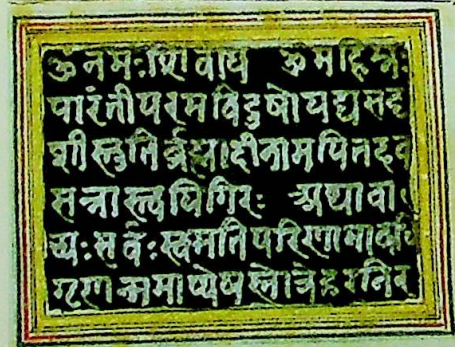 ॐ नमःशिवाय ॐ महिम्नः
पारंतीपरमविदुषोयद्यसदृ
शीस्तुतिर्ब्रह्मादीनामपितदव
सन्नास्त्वयिगिरः अथावा
च्यःसर्वःस्वमतिपरिणामावधि
गृणन्ममाप्येषस्तोत्रेहरनिर